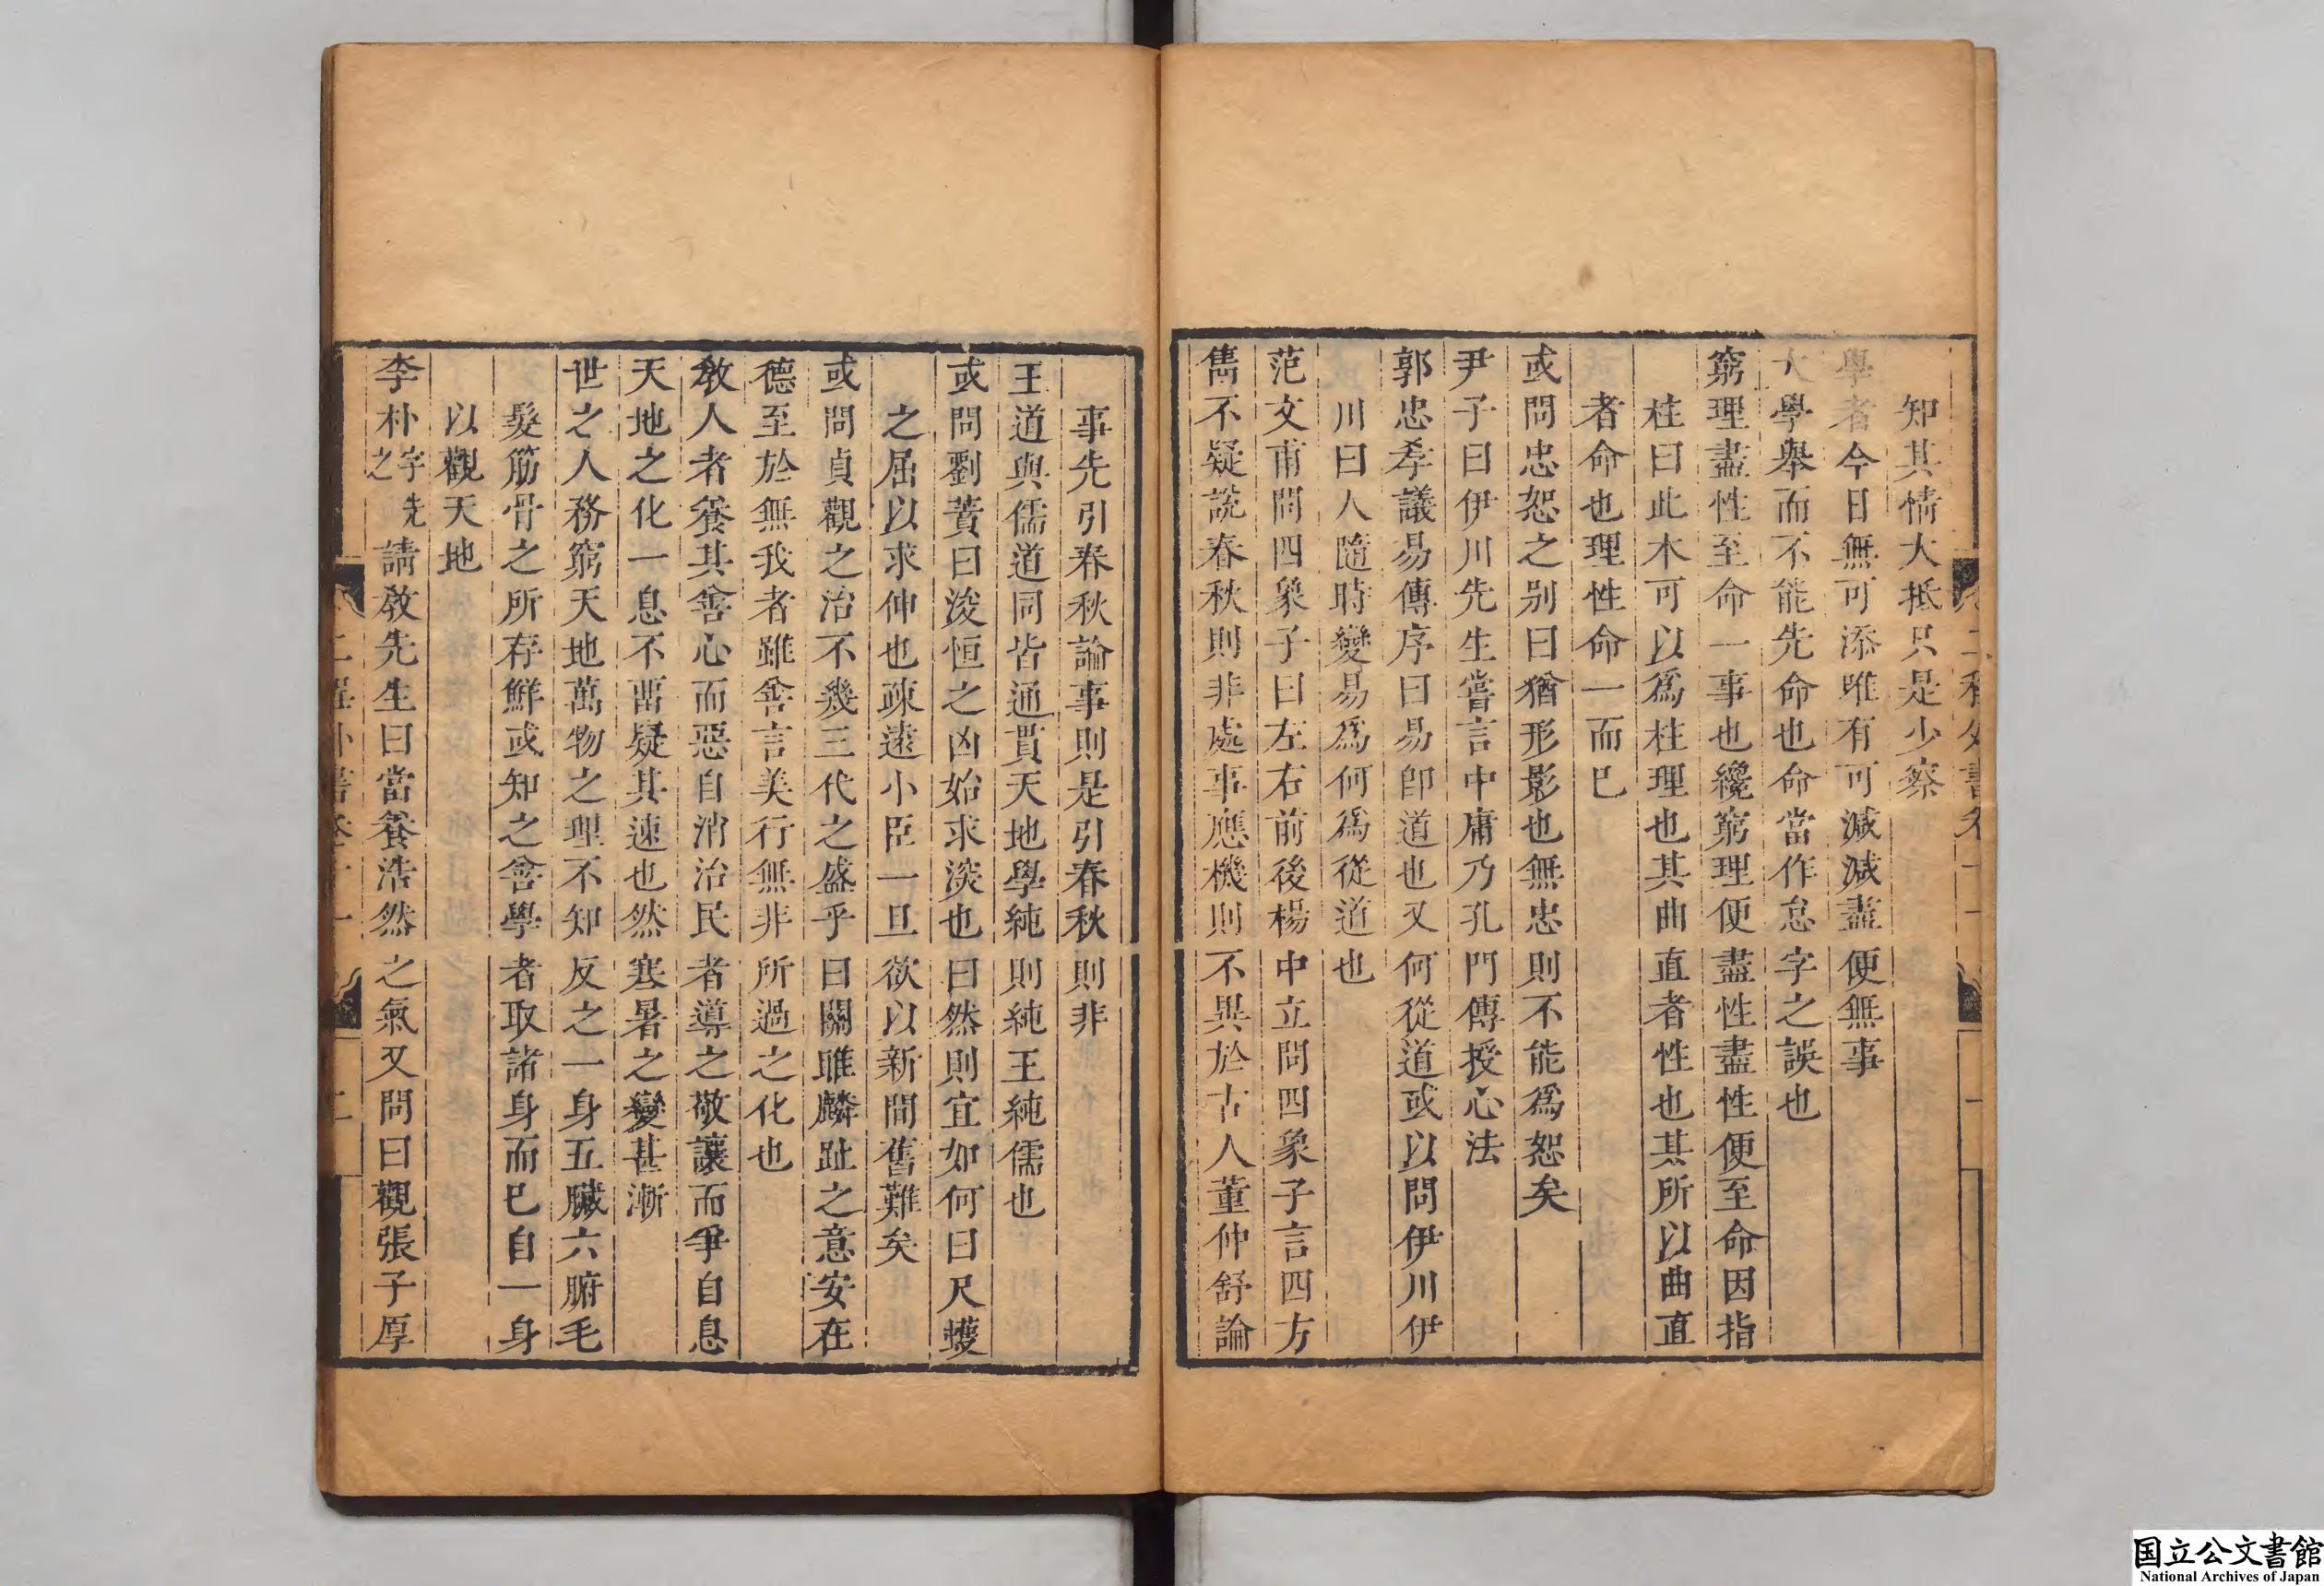 知其情大抵只是少察
學者今日無可添唯有可減減盡便無事
大學舉而不能先命也命當作怠字之誤也
窮理盡性至命一事也纔窮理便盡性盡性便至命因指
柱曰此木可以爲柱理也其曲直者性也其所以曲直
者命也理性命一而已
或問忠恕之别曰猶形影也無忠則不能爲恕矣
尹子曰伊川先生嘗言中庸乃孔門傳授心法
郭忠孝議易傳序曰易卽道也又何從道或以問伊川伊
川曰人隨時變易爲何爲從道也
范文甫問四象子曰左右前後楊中立問四象子言四方
雋不疑說春秋則非處事應機則不異於古人董仲舒論
事先引春秋論事則是引春秋則非
王道與儒道同皆通貫天地學純則純王純儒也
或問劉蕡曰浚恒之凶始求深也曰然則宜如何曰尺蠖
之屈以求伸也疎遠小臣一旦欲以新間舊難矣
或問貞觀之治不幾三代之盛乎曰關雎麟趾之意安在
德至於無我者雖善言美行無非所過之化也
敎人者養其善心而惡自消治民者導之敬讓而爭自息
天地之化一息不畱疑其速也然寒暑之變甚漸
世之人務窮天地萬物之理不知反之一身五臟六腑毛
髮筋骨之所存鮮或知之善學者取諸身而已自一身
以觀天地
李朴字先之請敎先生曰當養浩然之氣又問曰觀張子厚
国立公文書館
National Archives of Japan